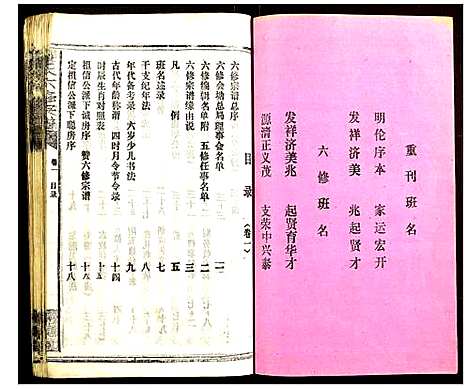 重刊班名
明伦序本 家运宏开
发祥济美 兆起贤才
六修班名
发祥济美兆 起贤育华才
源清正义茂 支荣中兴泰
目录 (卷一)
六修宗谱总序 一
六修会塘总局理事会名单 二
六修编辑名单附 五修任事名单 二
六修宗谱缘由说 三
凡例 五
班名述录 七
干支纪年法 八
年代备考录 六岁少儿书法 九
古代年龄称谓 四时月令节令录 十四
时辰生肖对照表 十
祖信公派下诚房序 赞六修宗谱 十五
定祖信公派下聪房序 十八
卷一 目录